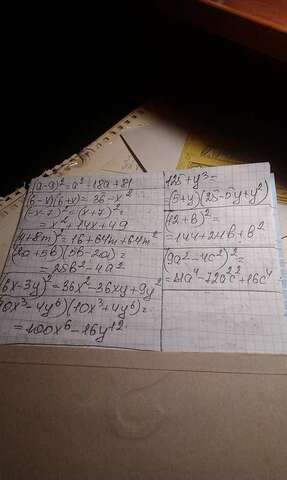 (a-9)²=a²-18a+81
(6-x)(6+x)=36-x²
(-x-7)²=(x+7)²=
=x²+14x+49
(4+8m)²=16+64m+64m²
(2a+5b)(5b-2a)=
=25b²-4a²
(6x-3y)²=36x²-36xy+9y²
(10x³-4y⁶)(10x³+4y⁶)=
=100x⁶-16y¹²
125+y³=
=(5+y)(25-5y+y²)
(12+b)²=
=144+24b+b²
(9a²-4c²)²=
=81a⁴-72a²c²+16c⁴